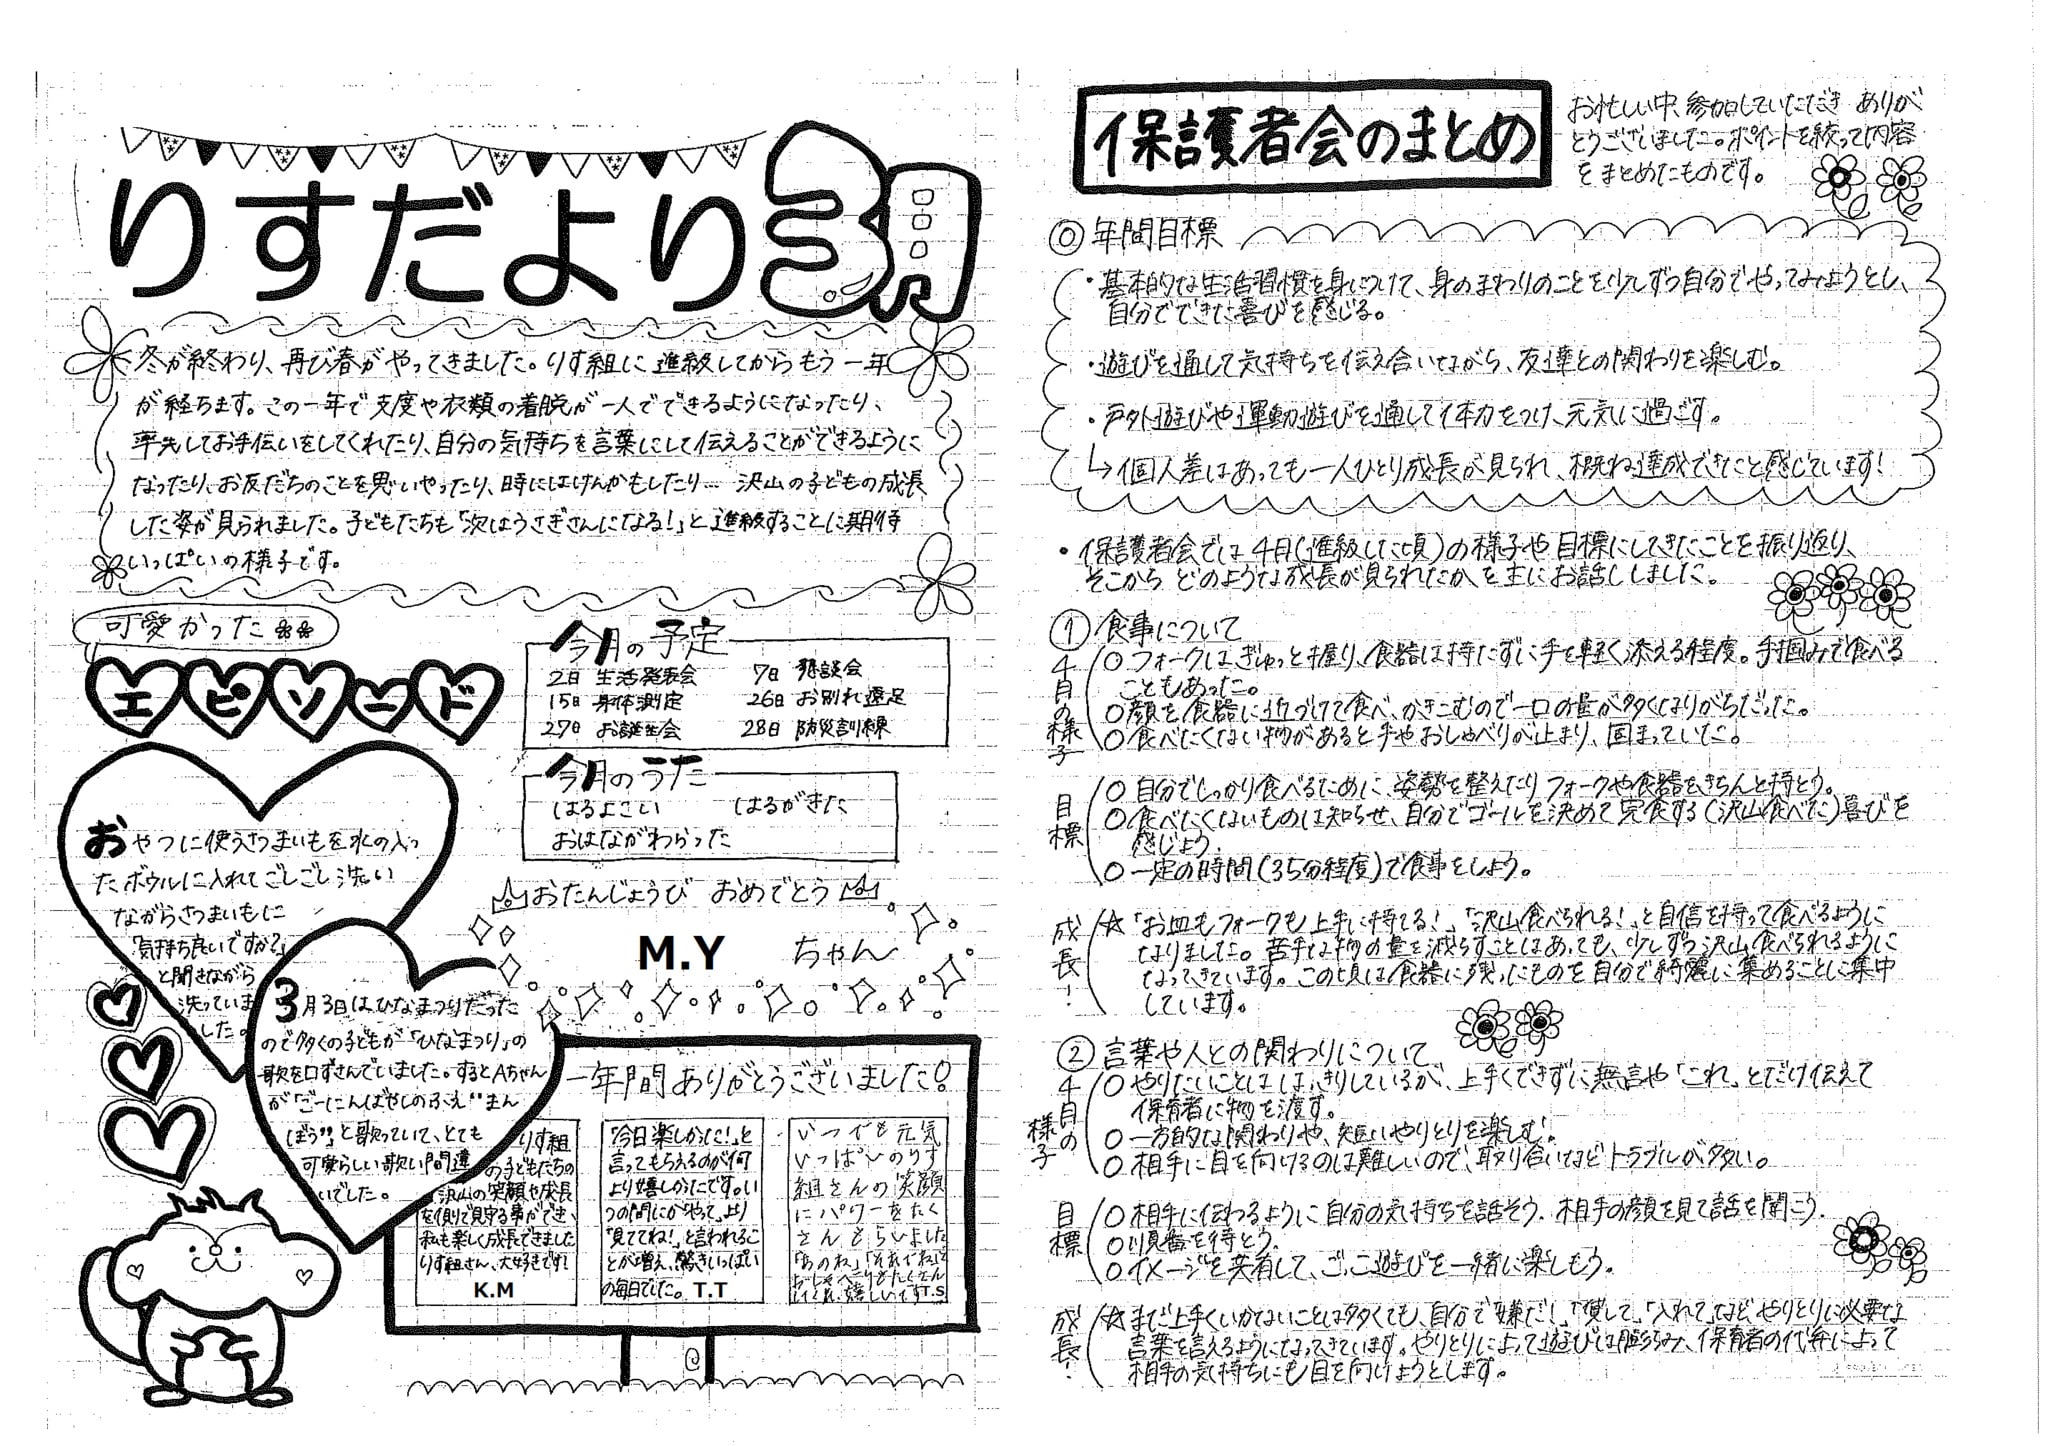 りすだより3月
冬が終わり、再び春がやってきました。りす組に進級してからもう一年
が経ちます。この一年で支度や衣類の着脱が一人でできるようになったり、
率先してお手伝いをしてくれたり、自分の気持ちを言葉にして伝えることができるように
なったり、お友だちのことを思いやったり、時にはけんかもしたり… 沢山の子どもの成長
した姿が見られました。子どもたちも「次はうさぎさんになる!」と進級することに期待
いっぱいの様子です。
可愛かった
エピソード
おやつに使うさつまいもを水の入っ
たボウルに入れてごしごし洗い
ながらさつまいもに
「気持ち良いですか?」
と聞きながら
洗っていま
した。
3月3日はひなまつりだった
ので多くの子どもが「ひなまつり」の
歌を口ずさんでいました。するとAちゃん
が「ごーにんばやしのふえ"まん
ぼう"」と歌っていて、とても
可愛らしい歌い間違
いでした。
今月の予定
2日 生活発表会 7日 懇談会
15日 身体測定 26日 お別れ遠足
27日 お誕生会 28日 防災訓練
今月のうた
はるよこい はるがきた
おはながわらった
おたんじょうび おめでとう
M.Y ちゃん
一年間ありがとうございました!
りす組
の子どもたちの
沢山の笑顔や成長
を側で見守る事ができ、
私も楽しく成長できました
りす組さん、大好きです!
K.M
「今日楽しかった!」と
言ってもらえるのが何
より嬉しかったです。い
つの間にか「やって」より
「見ててね!」と言われるこ
とが増え、驚きいっぱい
の毎日でした。T.T
いつでも元気
いっぱいのりす
組さんの笑顔
にパワーをたく
さんもらいました
「あのね」「それでね」と
おしゃべりがたくさん
嬉しいです T.S
保護者会のまとめ
お忙しい中、参加していただき ありが
とうございました。ポイントを絞って内容
をまとめたものです。
⓪ 年間目標
・基本的な生活習慣を身につけて、身のまわりのことを少しずつ自分でやってみようとし、
自分でできた喜びを感じる。
・遊びを通して気持ちを伝え合いながら、友達との関わりを楽しむ。
・戸外遊びや運動遊びを通して体力をつけ、元気に過ごす。
↳個人差はあっても一人ひとり成長が見られ、概ね達成できたと感じています!
・保護者会では4月(進級した頃)の様子や目標にしてきたことを振り返り、
そこから どのような成長が見られたか を主にお話ししました。
① 食事について
4月の様子
○フォークはぎゅっと握り、食器は持たずに手を軽く添える程度。手掴みで食べる
こともあった。
○顔を食器に近づけて食べ、かきこむので一口の量が多くなりがちだった。
○食べたくない物があると手やおしゃべりが止まり、固まっていた。
目標
○自分でしっかり食べるために、姿勢を整えたりフォークや食器をきちんと持とう。
○食べたくないものは知らせ、自分でゴールを決めて完食する(沢山食べた)喜びを
感じよう。
○一定の時間(35分程度)で食事をしよう。
成長!
☆「お皿もフォークも上手に持てる!」、「沢山食べられる!」と自信を持って食べるように
なりました。苦手な物の量を減らすことはあっても、少しずつ沢山食べられるように
なってきています。この頃は食器に残ったものを自分で綺麗に集めることに集中
しています。
② 言葉や人との関わりについて
4月の様子
○やりたいことははっきりしているが、上手くできずに無言や「これ」とだけ伝えて
保育者に物を渡す。
○一方的な関わりや、短いやりとりを楽しむ。
○相手に目を向けるのは難しいので、取り合いなどトラブルが多い。
目標
○相手に伝わるように自分の気持ちを話そう。相手の顔を見て話を聞こう。
○順番を待とう。
○イメージを共有して、ごっこ遊びを一緒に楽しもう。
成長!
☆まだ上手くいかないことは多くても、自分で「嫌だ!」「貸して」「入れて」など、やりとりに必要な
言葉を言えるようになってきています。やりとりによって遊びは膨らみ、保育者の代弁によって
相手の気持ちにも目を向けようとします。